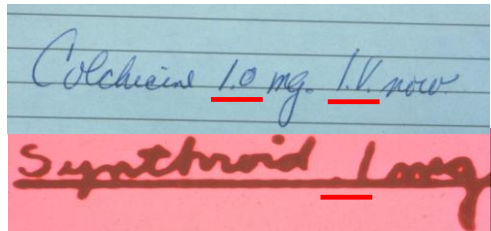 Colchicine 1.0 mg. I.V. now
Synthroid .1 mg